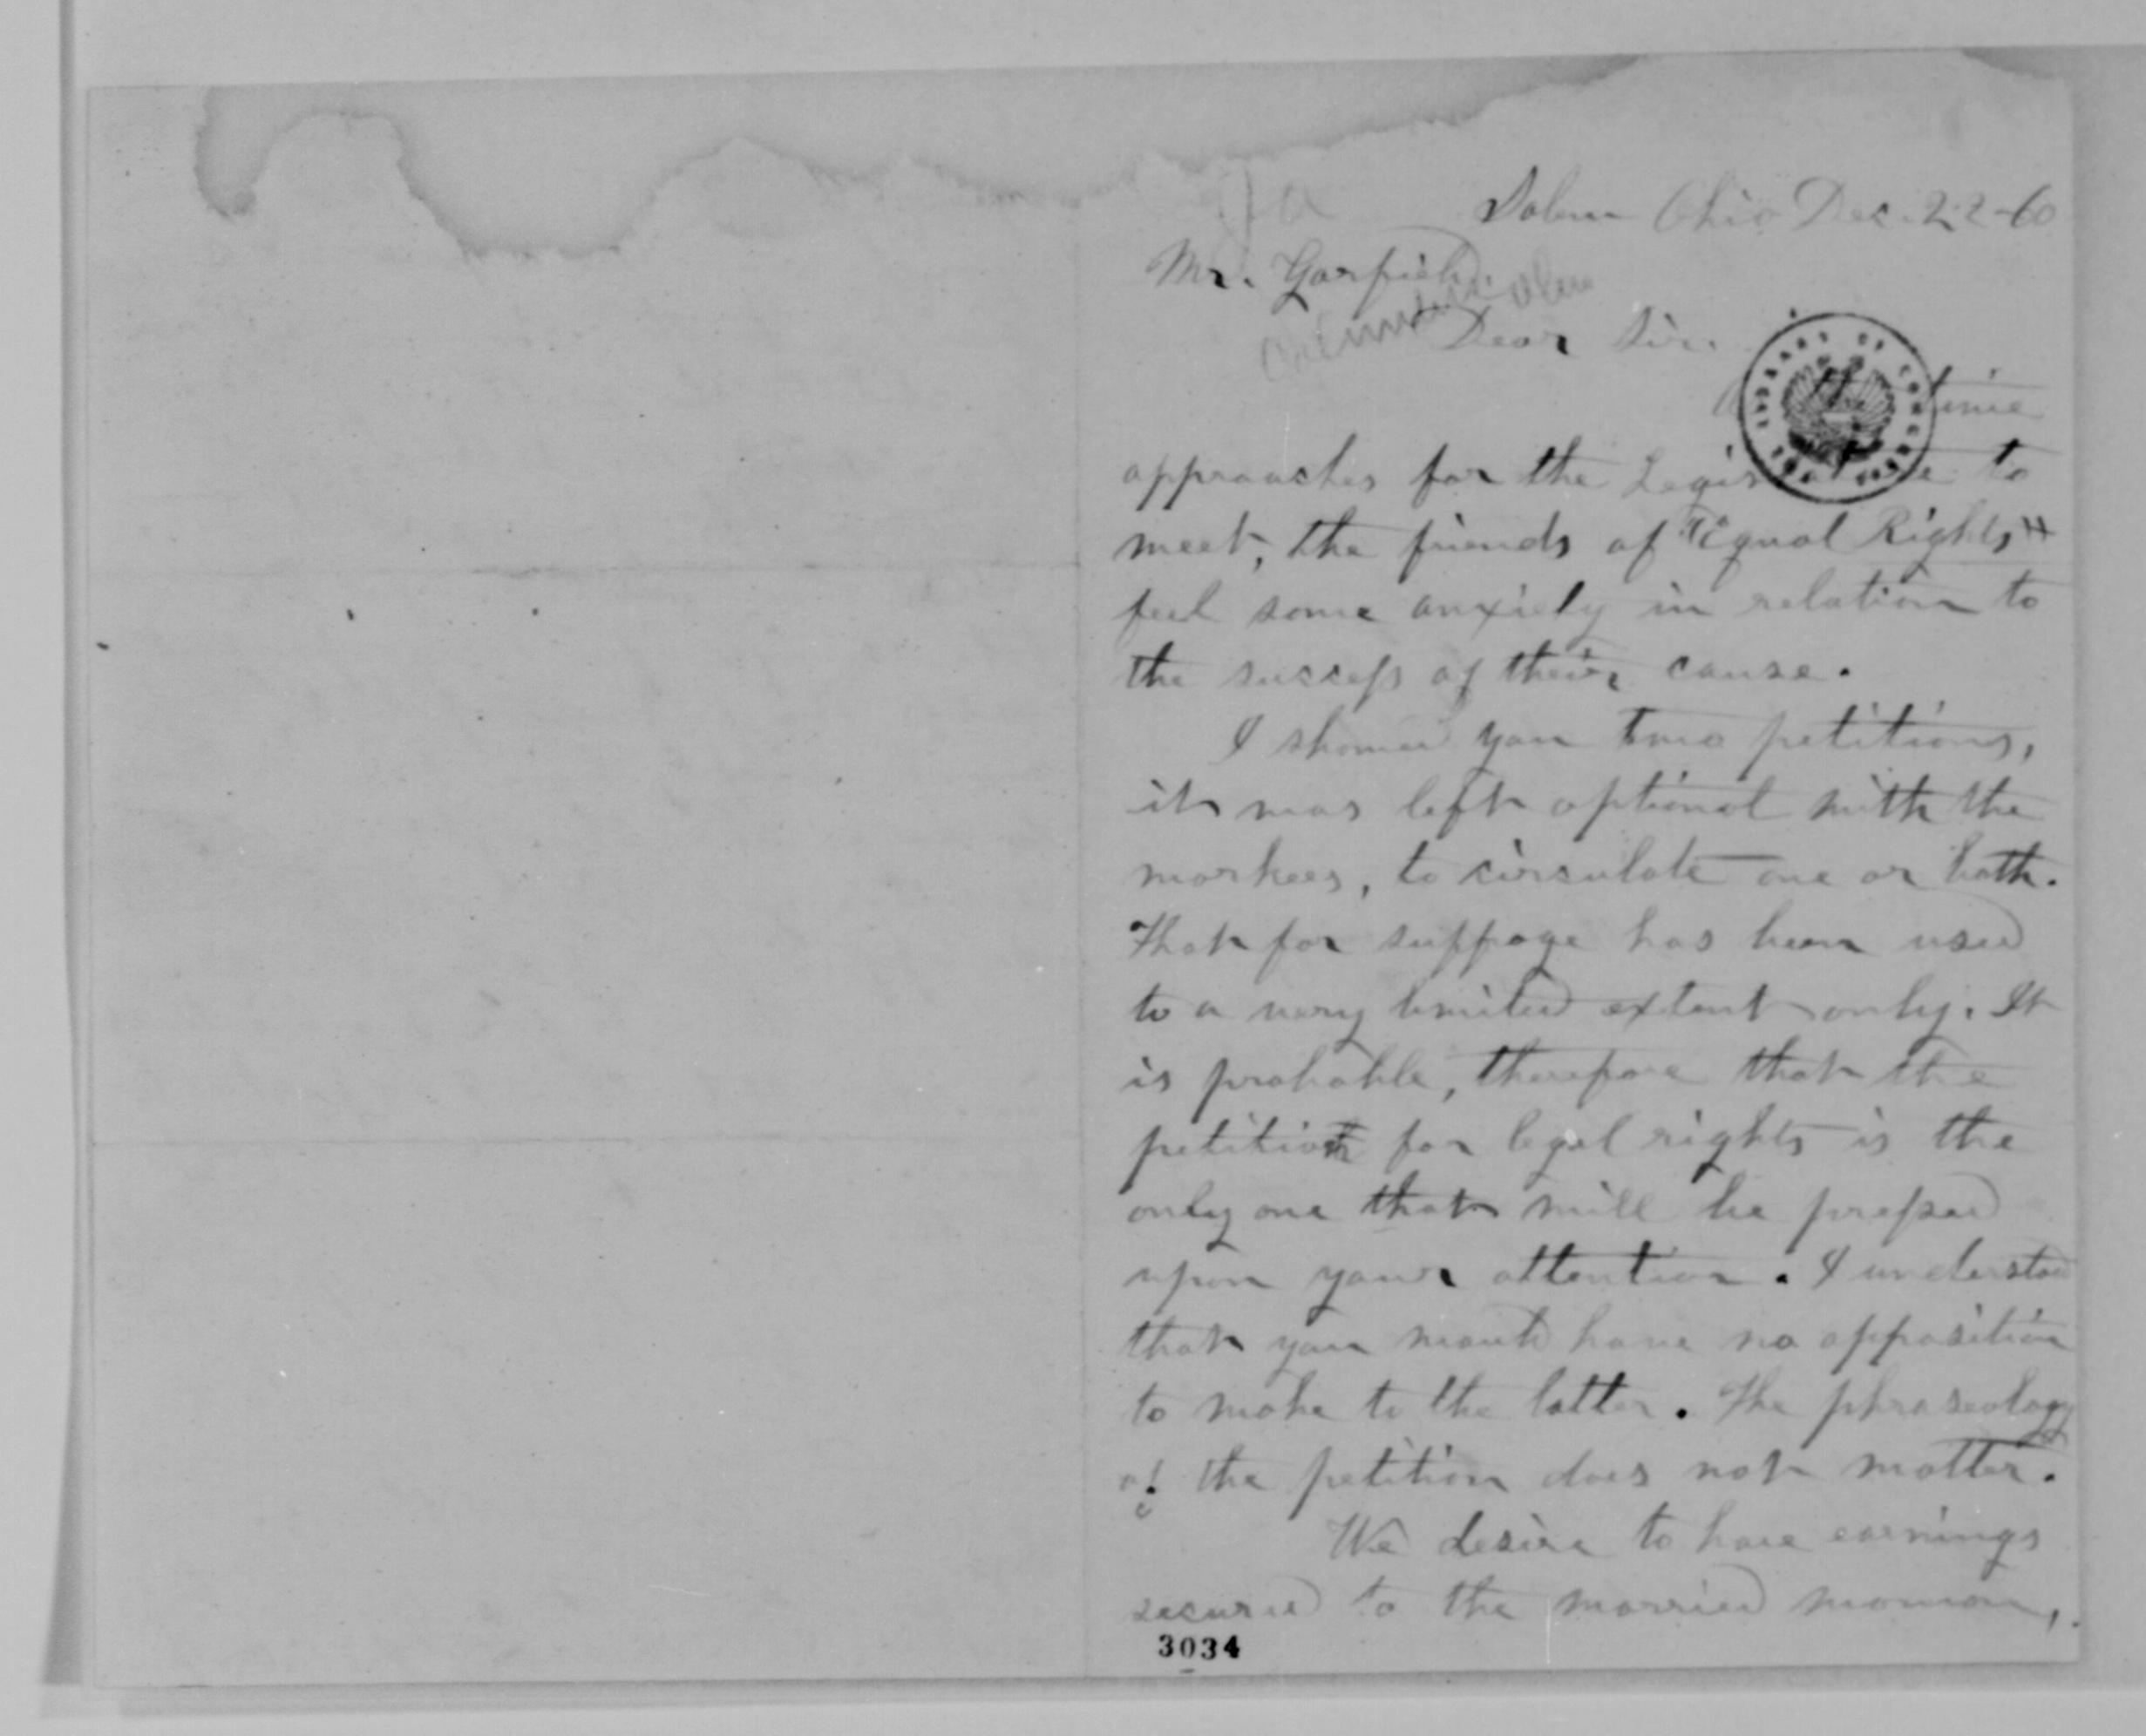 Salem Ohio Dec. 22-60
Mr. Garfield.
Dear Sir.
As the time
approaches for the Legislature to
meet, the friends of "Equal Rights"
feel some anxiety in relation to
the success of their cause.
I showed you two petitions,
it was left optional with the
workers, to circulate one or both.
That for suffrage has been used
to a very limited extent only. It
is probable, therefore that the
petition for legal rights is the
only one that will be pressed
upon your attention. I understood
that you would have no opposition
to make to the latter. The phraseology
of the petition does not matter.
We desire to have earnings
secured to the married woman,
3034
THE LIBRARY OF CONGRESS